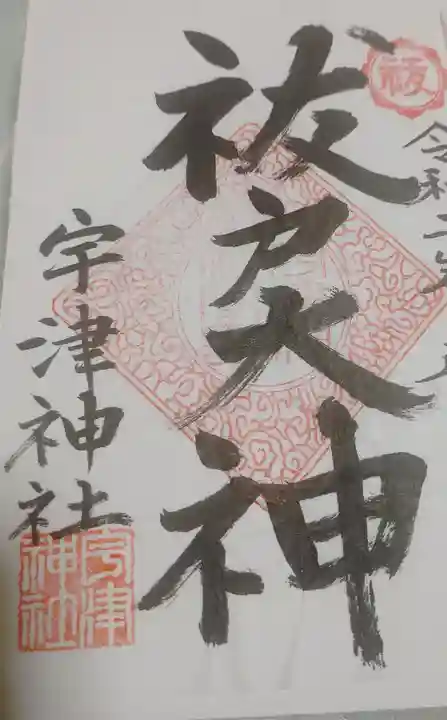 祓
令和二年
祓戸大神
宇津神社
宇津神社